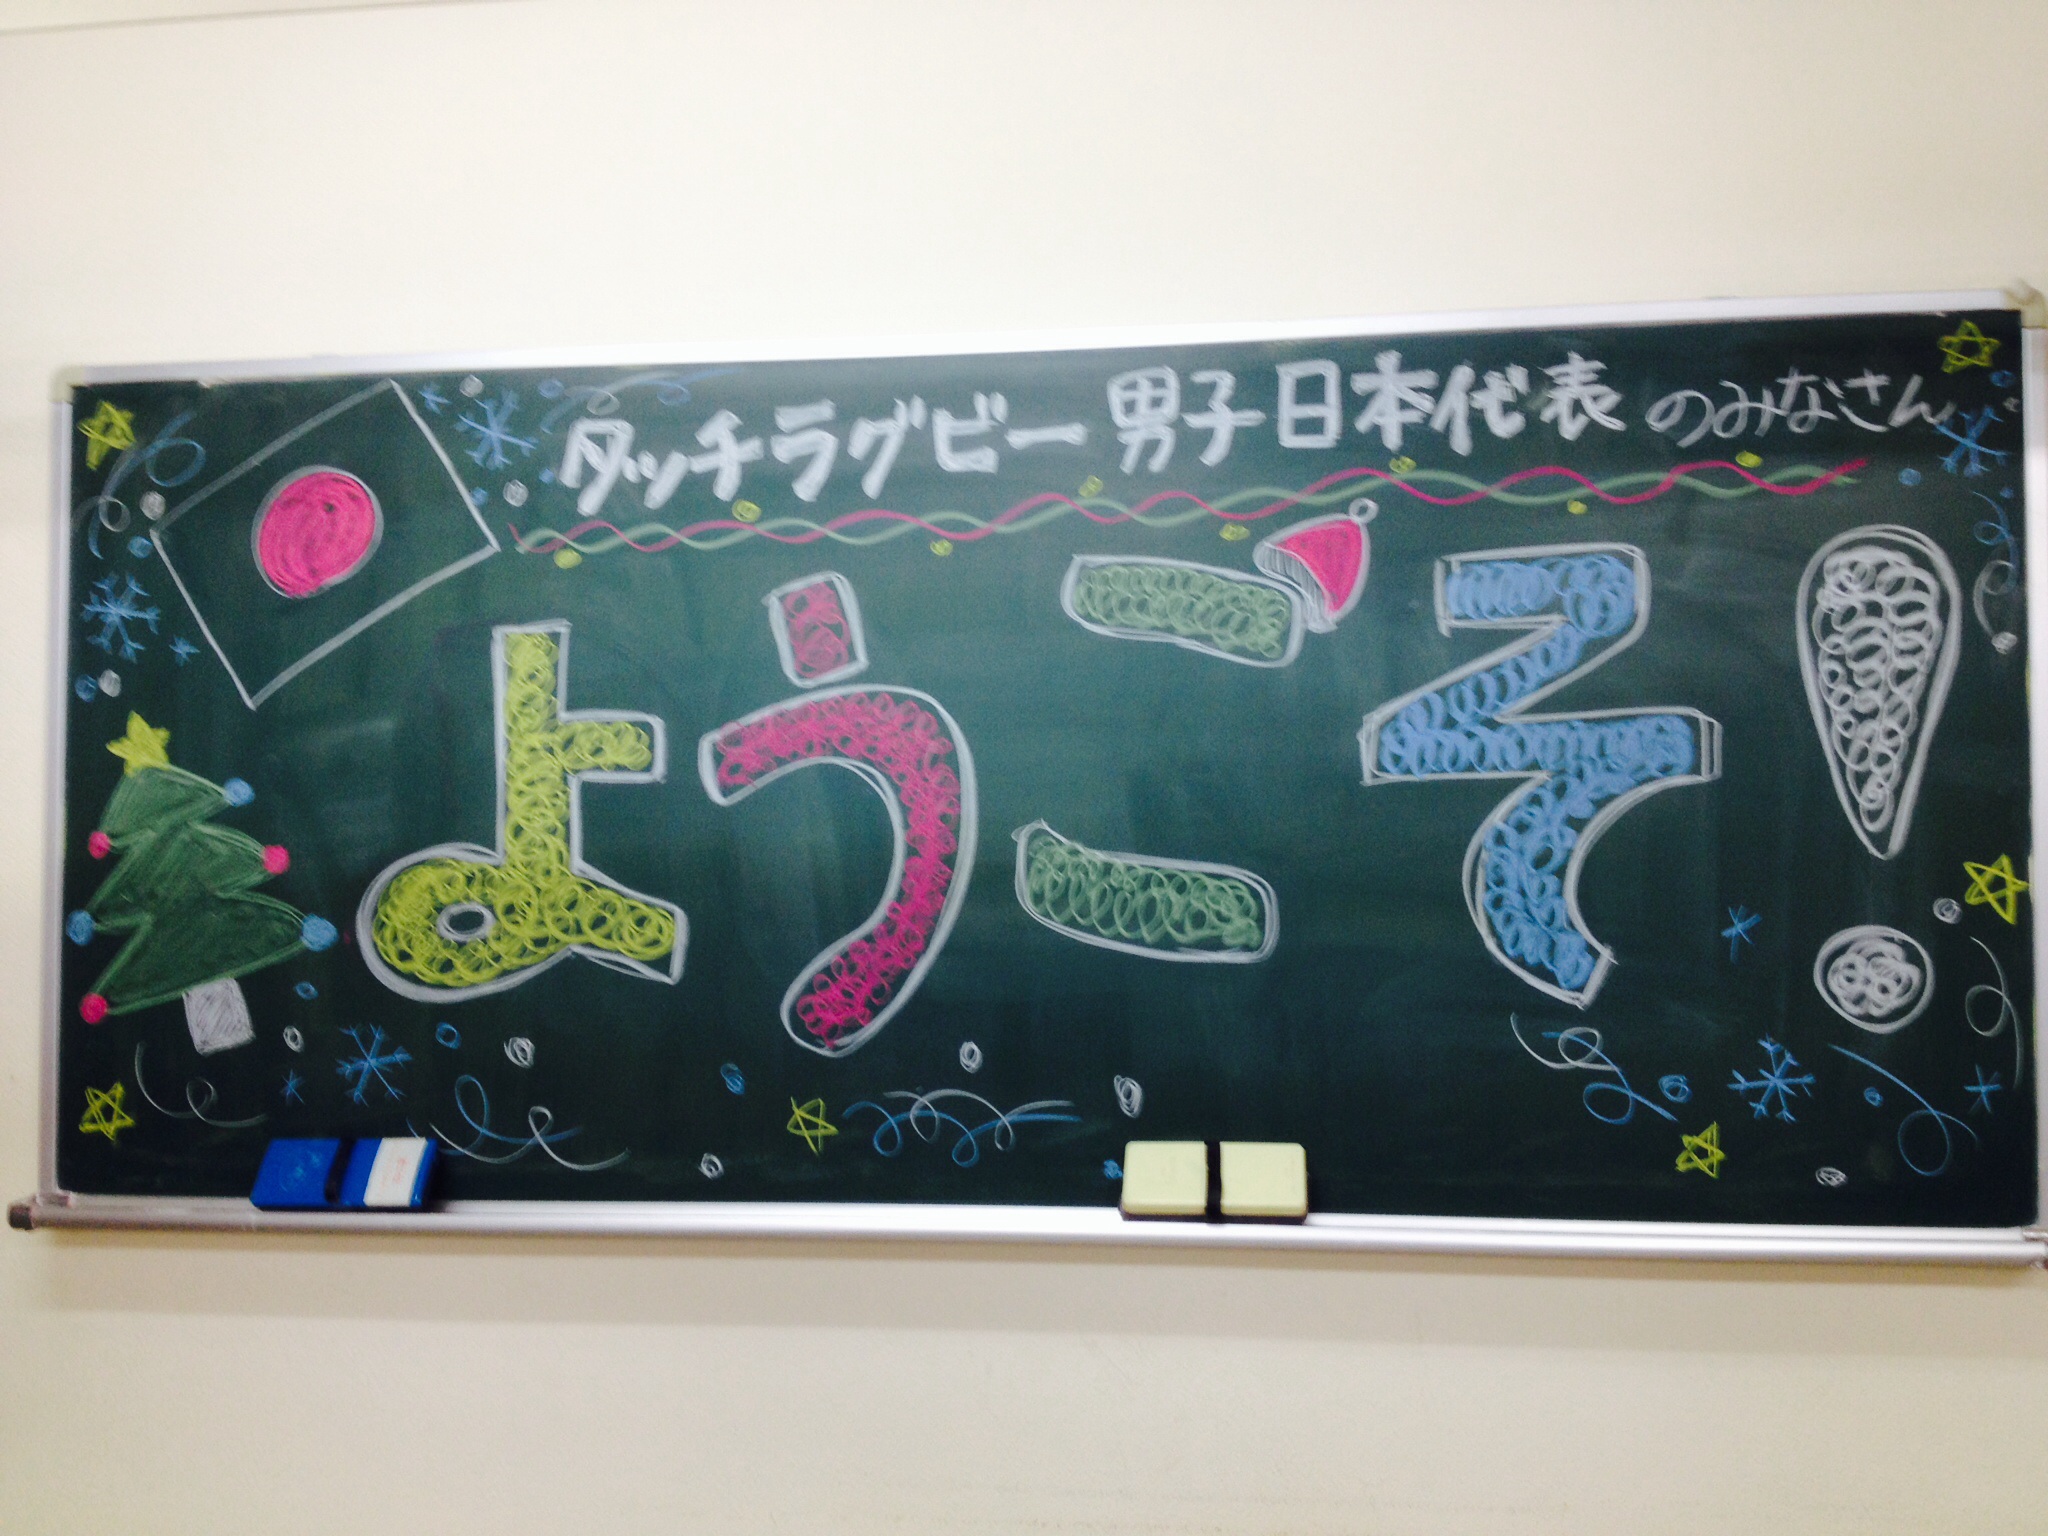 タッチラグビー男子日本代表のみなさん
ようこそ!